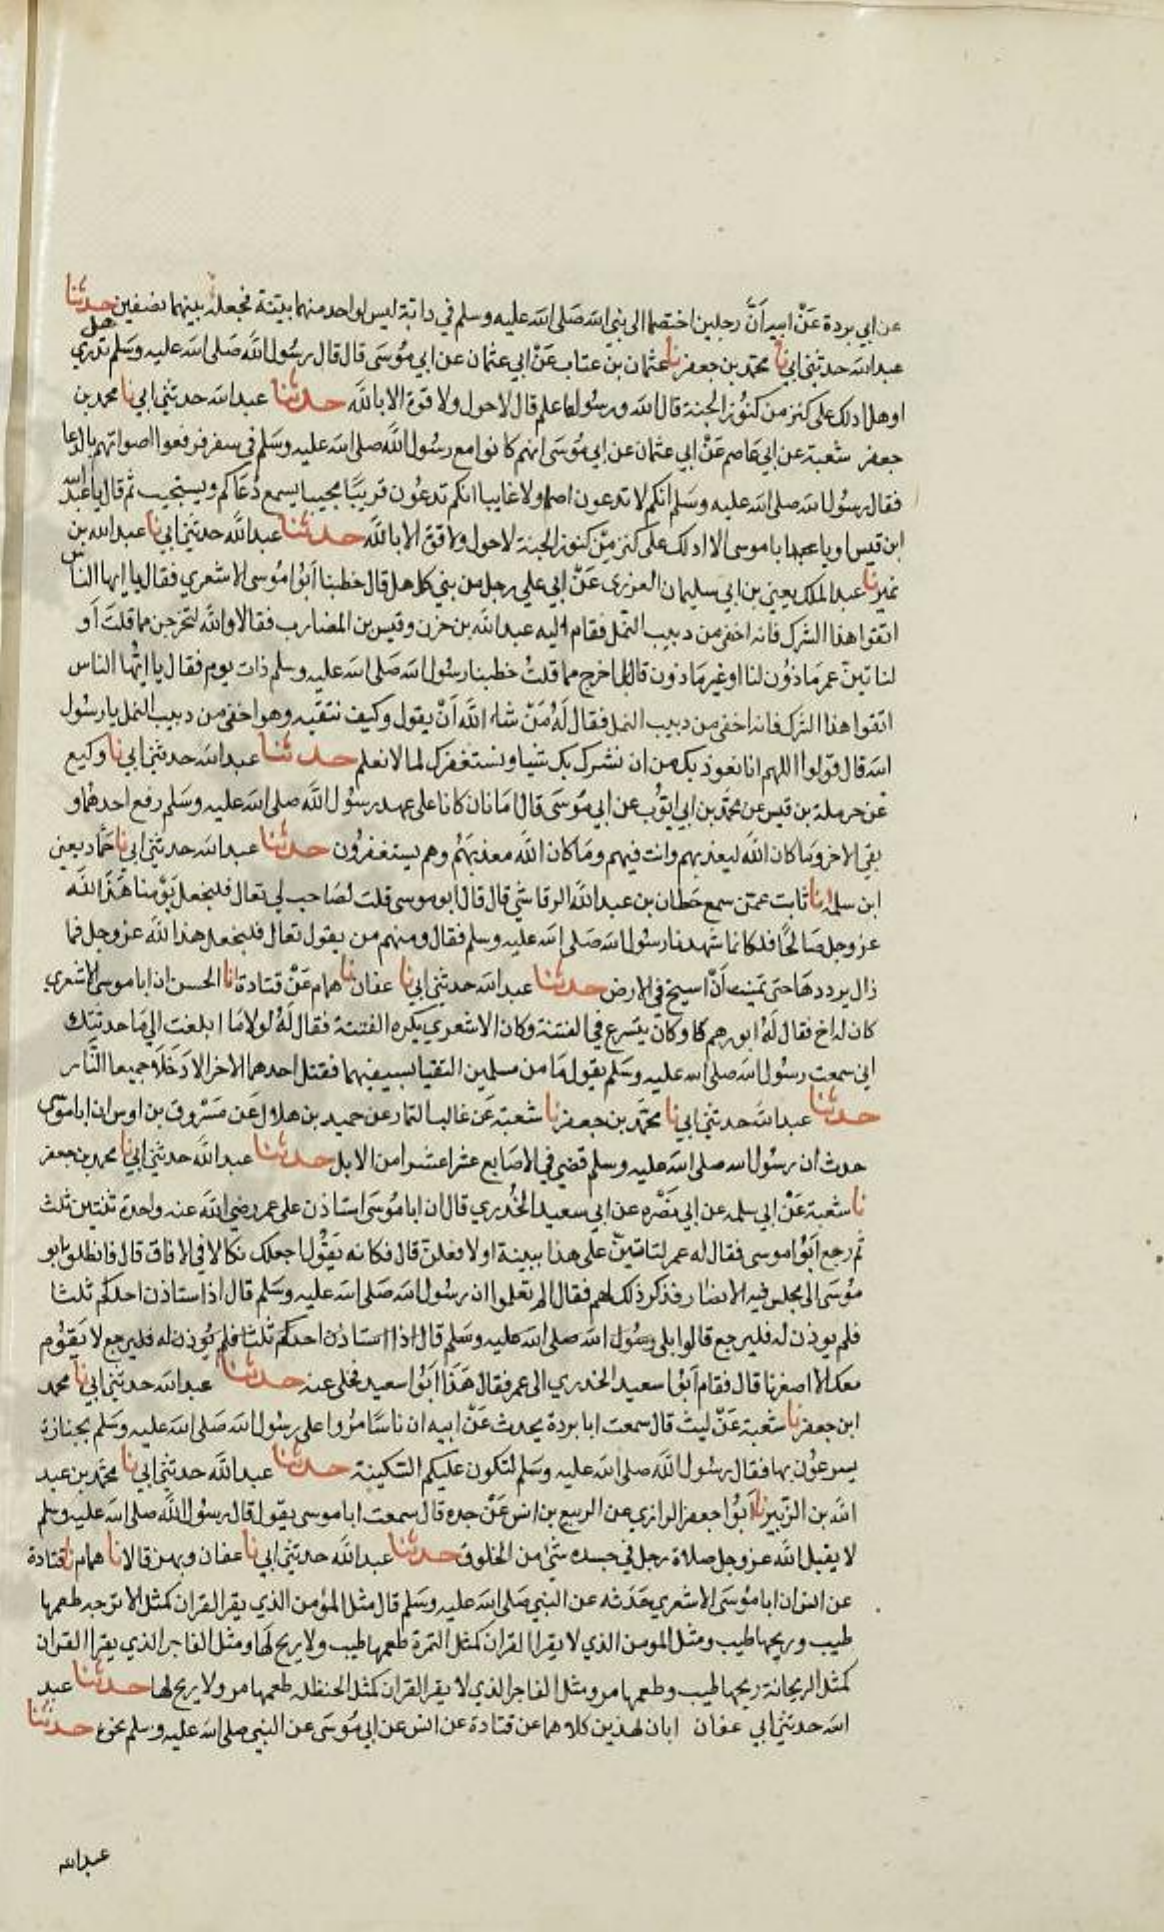 عن ابي بردة عَنْ ابيه اَنَّ رجلين اختصما الى نبي الله صَلى الله عليه وسلم في دابة ليس لواحد منهما بينة فجعله بينهما نصفين حدثنا
عبدالله حدثني ابي نا محمد بن جعفر نا عثمان بن عتاب عَنْ ابي عثمان عن ابي مُوسَى قال قال رسُول الله صَلى الله عليه وسَلم تدري هل
او هل ادلك على كنز من كنوز الجنة قال الله ورسُوله اعلم قال لاحول ولا قوة الا بالله حدثنا عبدالله حدثني ابي نا محمد بن
جعفر شعبة عن ابي عَاصم عَنْ ابي عثمان عن ابي مُوسَى انهم كانوا مع رسُول الله صلى الله عليه وسَلم في سفر فرفعوا اصواتهم بالدعا
فقال رسُول الله صلى الله عليه وسَلم انكم لا تدعون اصما ولا غايبا انكم تدعُون قريبًا مجيبا يسمع دُعَاكم ويستجيب ثم قال يا عبد الله
ابن قيس او يا اباموسى الا ادلك على كنز مِنْ كنوز الجنة لاحول ولا قوة الا بالله حدثنا عبدالله حدثني ابي نا عبدالله بن
نمير نا عبدالملك يعني بن ابي سليمان العرزمي عَنْ ابي علي رجل من بني كاهل قال خطبنا اَبُو امُوسى الاشعري فقال يا ايها الناس
اتقوا هذا الشرك فانه اخفى من دبيب النمل فقام اليه عبدالله بن حزن وقيس بن المضارب فقالا والله لتخرجن مما قلتَ اَو
لناتينّ عمر مَاذُون لنا او غير مَاذون قال بل اخرج مما قلتُ خطبنا رسُول الله صَلى الله عليه وسلم ذات يوم فقال يا ايُّها الناس
اتقوا هذا الشرك فانه اخفى من دبيب النمل فقال لَهُ مَنْ شاء الله اَنْ يقول وكيف نتقيه وهو اخفى من دبيب النمل يا رسُول
الله قال قولوا اللهم انا نعوذ بك من ان نشرك بك شيا ونستغفرك لما لا نعلم حدثنا عبدالله حدثني ابي نا وكيع
عَن حرملة بن قيس عن محمد بن ابي ايوُب عن ابي مُوسَى قال امانان كانا على عهد رسُول الله صلى الله عليه وسَلم رفع احدهما و
بقي الاخر وما كان الله ليعذبهم وانت فيهم ومَا كان الله معذبَهُم وهم يستغفرُون حدثنا عبدالله حدثني ابي نا حَماد يعني
ابن سلمة انا ثابت عمّن سمع حَطان بن عبدالله الرقاشي قال قال ابو موسى قلت لصَاحب لي تعال فلنجعل يَوْمنا هَذَا لله
عز وجل صَالحًا فلكانما شهدنا رسُول الله صَلى الله عليه وسلم فقال ومنهم من يقول تعال فلنجعل هذا لله عز وجل فما
زال يرددهَا حتى تمنيت اَنْ اسيخ في الارض حدثنا عبدالله حدثني ابي نا عفان نا همام عَنْ قتادة نا الحسن ان اباموسى الاشعري
كان له اخ فقال لَهُ ابو رهم كا وكانَ يتسرع في الفتنة وكان الاشعري يكره الفتنة فقال لَهُ لولا مَا ابلغت الي مَا حدثتك
اني سمعت رسُول الله صلى الله عليه وسَلم يقول مَا من مسلمين التقيا بسيفيهما فقتل احدهما الاخر الا دَخلَا جميعا النَّار
حدثنا عبدالله حدثني ابي نا محمَد بن جعفر نا شعبة عَن غالب التمار عن حميد بن هلال عَن مَسْروق بن اوس ان اباموسى
حدث ان رسُول الله صلى الله عليه وسلم قضى في الاصَابع عشرا عشرا من الابل حدثنا عبدالله حدثني ابي نا محمد بن جعفر
نا شعبة عَنْ ابي سلمه عن ابي نضره عن ابي سعيد الخُدري قال ان ابامُوسَى استاذن على عمر رضي الله عنه واحدة ثنتين ثلث
ثم رجع اَبُو اموسى فقال له عمر لتَاتينّ على هذا ببينة او لافعلن قال فكانه يَقُول اجعلك نكالا في الافاق قال فانطلق ابو
مُوسَى الى مجلس فيه الانصَار فذكر ذلك لهم فقال الم تعلموا ان رسُول الله صَلى الله عليه وسَلم قال اذا استاذن احدكم ثلثا
فلم يوذن له فليرجع قالوا بلى رسُول الله صلى الله عليه وسَلم قال اذا استاذن احدكم ثلثا فلم يُوذن له فليرجع لا يَقوُم
معك الا اصغرنا قال فقام اَبُوا سعيد الخدري الى عمر فقال هَذَا اَبُو ا سعيد فخلى عنه حدثنا عبدالله حدثني ابي نا محمد
ابن جعفر نا شعبة عَنْ ليث قال سمعت ابا بردة يحدث عَنْ ابيه ان ناسًا مرُوا على رسُول الله صَلى الله عليه وسَلم بجنازة
يسرعُون بها فقال رسُول الله صلى الله عليه وسَلم لتكون عليكم السكينة حدثنا عبدالله حدثني ابي نا محمّد بن عبد
الله بن الزّبير نا اَبُوا جعفر الرازي عن الربيع بن انس عَنْ جده قال سمعت اباموسى يقول قال رسُول الله صلى الله عليه وسلم
لا يقبل الله عز وجل صلاة رجل في جسده شئ من الخلوق حدثنا عبدالله حدثني ابي نا عفان وبهز قالا نا همام نا قتادة
عن انس ان ابامُوسَى الاشعري حَدَثه عن النبي صَلى الله عليه وسَلم قال مثل المؤمن الذي يقرا القران كمثل الاترجه طعمها
طيب وريحها طيب ومثل المومن الذي لا يقرا القران كمثل التمرة طعمها طيب ولا ريح لَها ومثل الفاجر الذي يقرا القران
كمثل الريحانة ريحها طيب وطعمها مر ومثل الفاجر الذي لا يقرا القران كمثل الحنظله طعمها مر ولا ريح لها حدثنا عبد
الله حدثني ابي عفان ابان لهذين كلاهما عن قتادة عن انس عن ابي مُوسَى عن النبي صلى الله عليه وسلم نحوه حدثنا
عبدالله